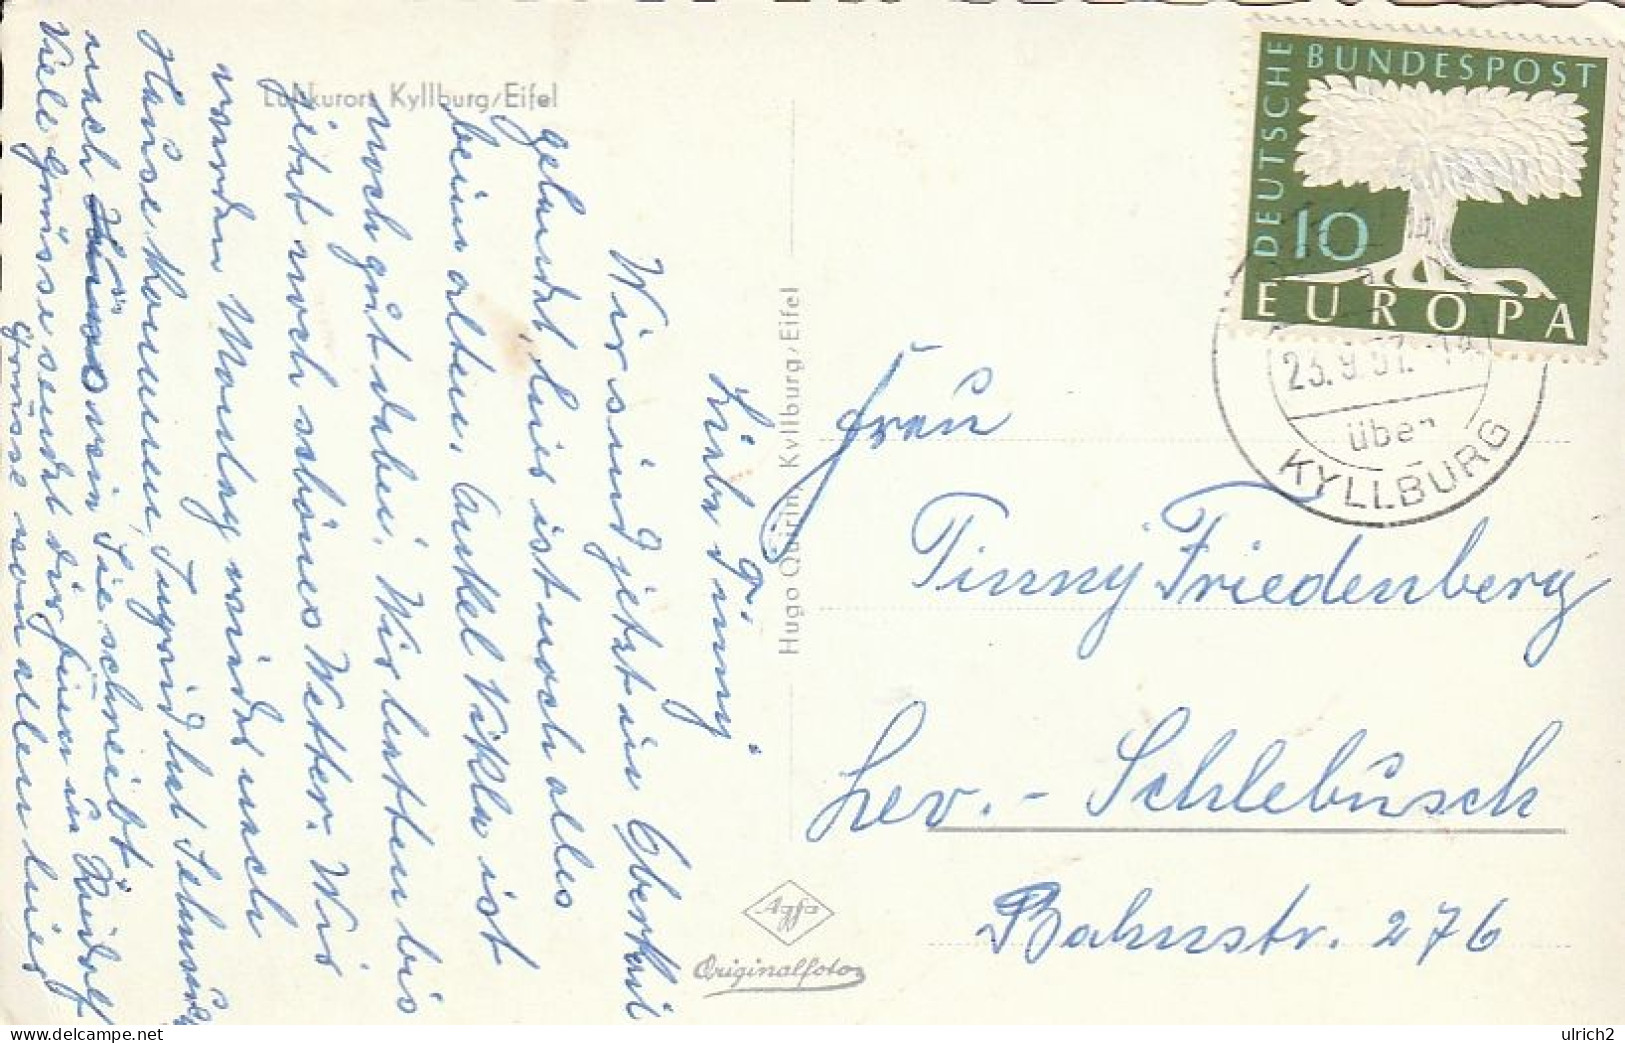 Luftkurort Kyllburg/Eifel
Liebe G. inny
Wir sind jetzt in Oberkail
gelandet, hier ist noch alles
beim alten. Onkel Vikla ist
noch gut dabei. Wir hatten bis
jetzt noch schönes Wetter. Wir
werden Montag wieder nach
Hause kommen, Ingrid hat Sehnsucht
nach Haus wie Sie schreibt.
Viele Grüsse sendet dir Finn u. Rudolf
Grüsse von allen hier
Hugo Quirin, Kyllburg/Eifel
Agfa
Originalfoto
DEUTSCHE BUNDESPOST
10
EUROPA
23.9.57.-
über
KYLLBURG
Frau
Tinny Friedenberg
Lev.- Schlebusch
Bahnstr. 276
ulrich2